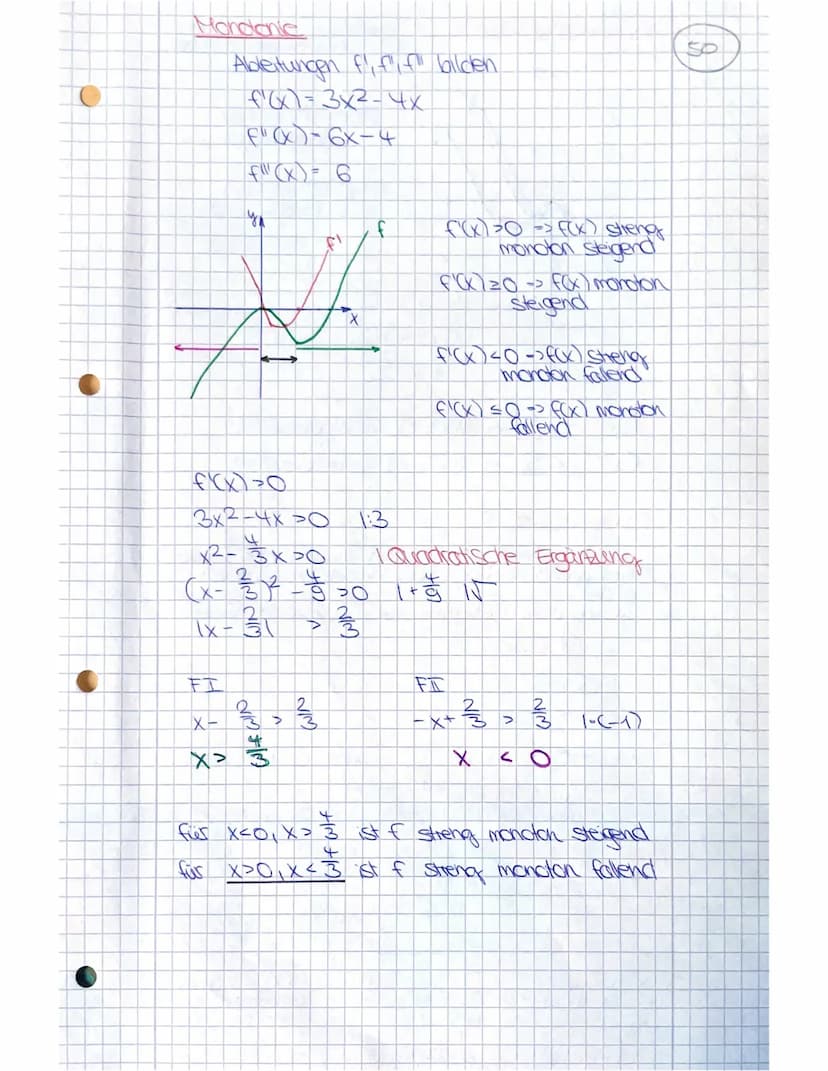 Monotonie
50
Ableitungen f', f'', f''' bilden
f'(x) = 3x² - 4x
f''(x) = 6x - 4
f'''(x) = 6
y
f'
f
x
f'(x) > 0 -> f(x) streng
monoton steigend
f'(x) ≥ 0 -> f(x) monoton
steigend
f'(x) < 0 -> f(x) streng
monoton fallend
f'(x) ≤ 0 -> f(x) monoton
fallend
f'(x) > 0
3x² - 4x > 0 |:3
x² - 4/3 x > 0 | Quadratische Ergänzung
(x - 2/3)² - 4/9 > 0 | + 4/9 | √
|x - 2/3| > 2/3
FI
x - 2/3 > 2/3
x > 4/3
FII
-x + 2/3 > 2/3 | ·(-1)
x < 0
für x<0, x > 4/3 ist f streng monoton steigend
für x>0, x < 4/3 ist f streng monoton fallend